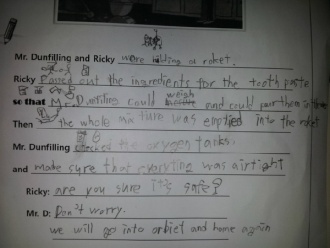 Mr. Dunfilling and Ricky were bilding a roket.
Ricky passed out the ingredients for the tooth paste
so that Mr. Dunfilling could weigh and could pour them in the
Then the whole mixture was emptied into the roket
Mr. Dunfilling checked the oxygen tanks.
and made sure that everyting was airtight
Ricky: are you sure it's safe?
Mr. D: Don't worry.
we will go into orbiet and home again